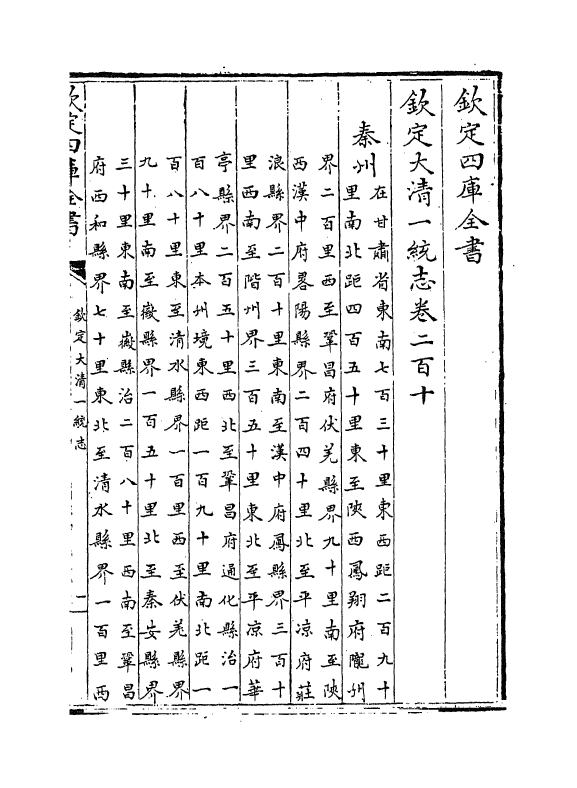 欽定四庫全書
欽定大清一統志卷二百十
秦州
在甘肅省東南七百三十里東西距二百九十
里南北距四百五十里東至陝西鳳翔府隴州
界二百里西至鞏昌府伏羌縣界九十里南至陝
西漢中府畧陽縣界二百四十里北至平凉府莊
浪縣界二百十里東南至漢中府鳳縣界三百十
里西南至階州界三百五十里東北至平凉府華
亭縣界二百五十里西北至鞏昌府通化縣治一
百八十里本州境東西距一百九十里南北距一
百八十里東至清水縣界一百里西至伏羌縣界
九十里南至徽縣界一百五十里北至秦安縣界
三十里東南至徽縣治二百八十里西南至鞏昌
府西和縣界七十里東北至清水縣界一百里西
欽定四庫全書
欽定大清一統志